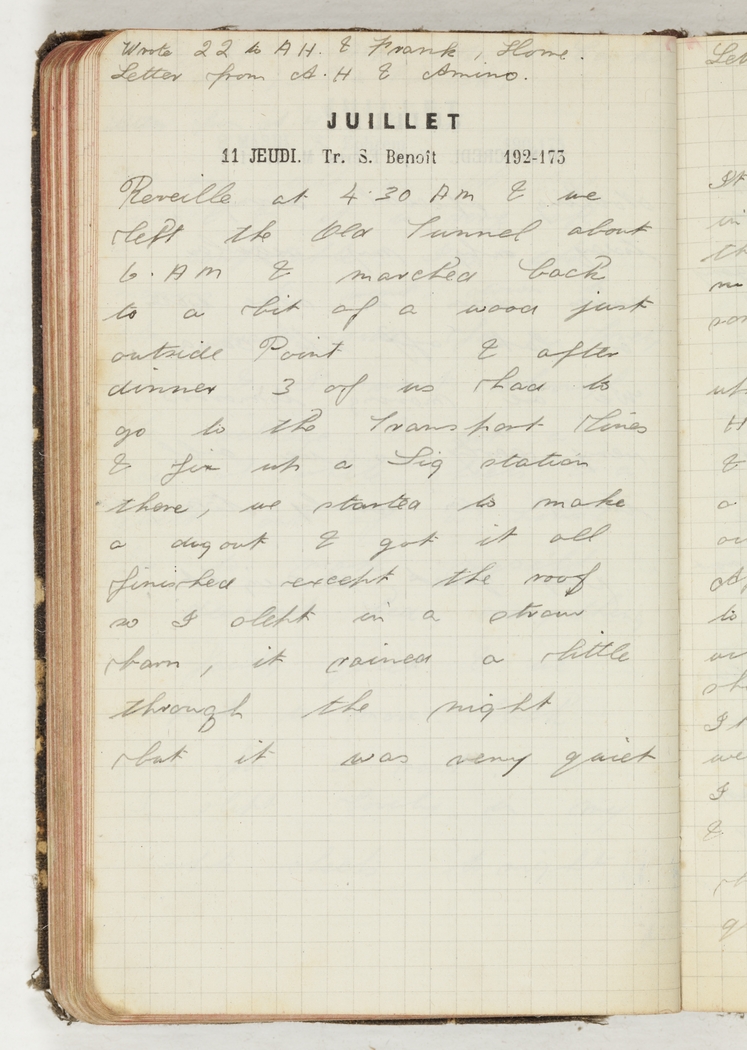 Wrote 22 to A H. & Frank, Home.
Letter from A. H & Amino.
JUILLET
11 JEUDI. Tr. S. Benoît 192-173
Reveille at 4.30 AM & we
left the Old Tunnel about
6. AM & marched back
to a bit of a wood just
outside Point & after
dinner 3 of us had to
go to the Transport lines
& fix up a Sig station
there, we started to make
a dugout & got it all
finished except the roof
so I slept in a straw
barn, it rained a little
through the night
but it was very quiet